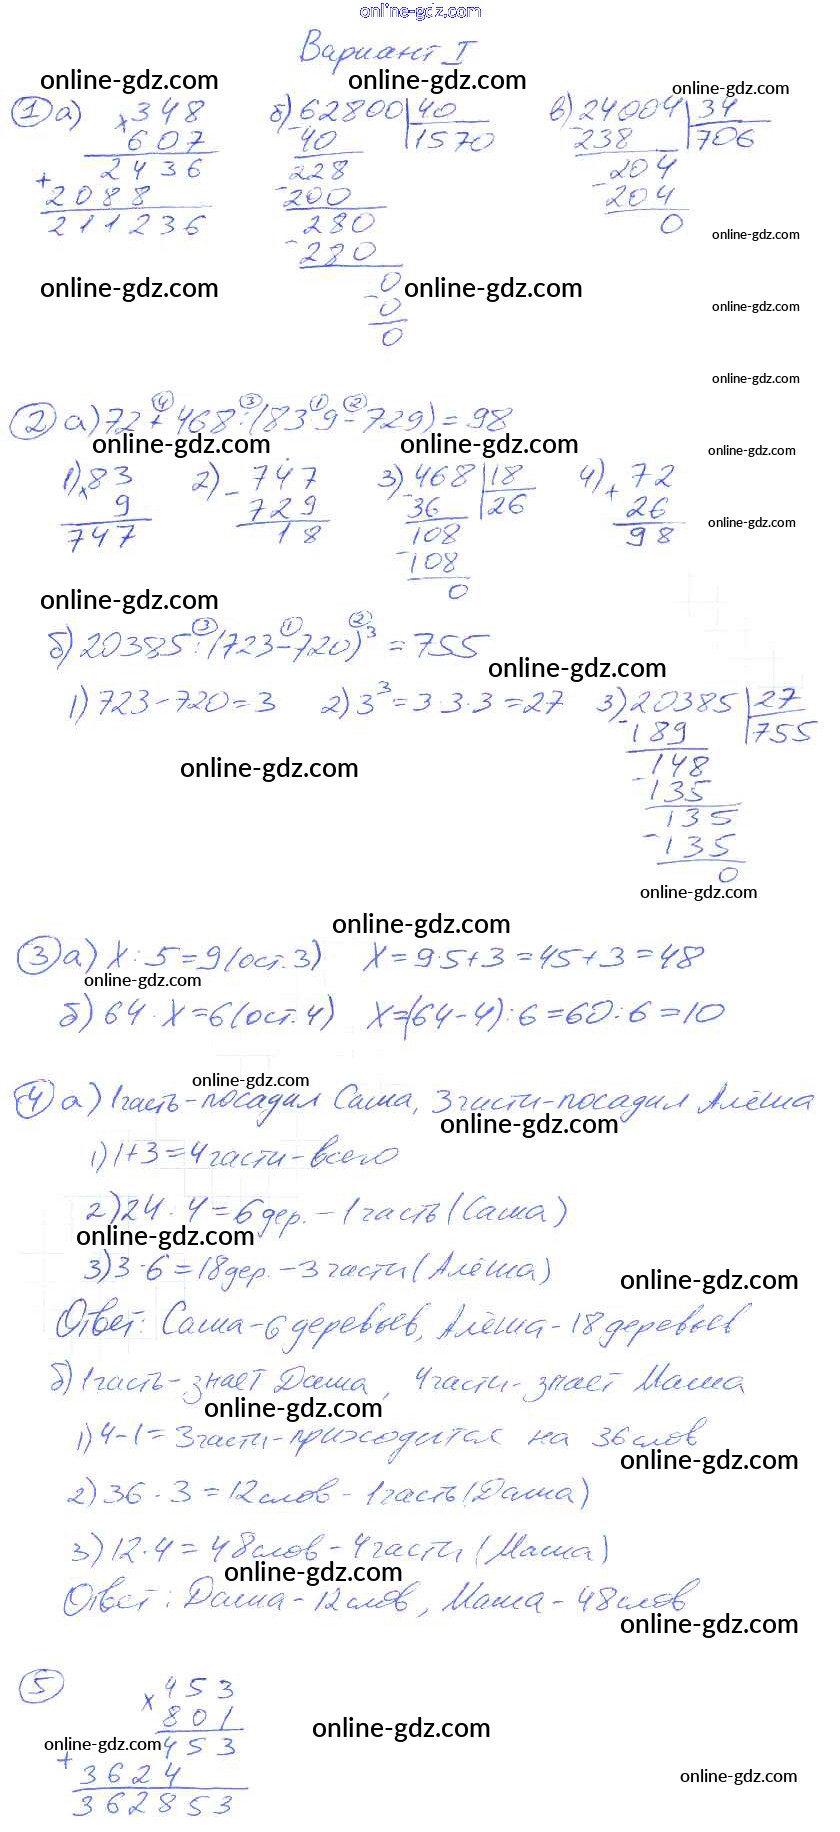 online-gdz.com
Вариант I
online-gdz.com online-gdz.com online-gdz.com
1 а) × 348 б) 62800 | 40 в) 24004 | 34
607 - 40 | 1570 - 238 | 706
2436 228 204
+ 2088 - 200 - 204
211236 280 0
- 280 online-gdz.com
online-gdz.com 0 online-gdz.com
- 0 online-gdz.com
0
online-gdz.com
2 а) 72 + 468 : (83 · 9 - 729) = 98
4 3 1 2
online-gdz.com online-gdz.com online-gdz.com
1) × 83 2) - 747 3) 468 | 18 4) + 72
9 729 - 36 | 26 26
747 18 108 98
online-gdz.com
- 108
0
online-gdz.com
3 1 2
б) 20385 : (723 - 720)³ = 755
online-gdz.com
1) 723 - 720 = 3 2) 3³ = 3 · 3 · 3 = 27 3) 20385 | 27
- 189 | 755
148
online-gdz.com
- 135
135
- 135
0
online-gdz.com
online-gdz.com
3 а) х : 5 = 9 (ост. 3) х = 9 · 5 + 3 = 45 + 3 = 48
online-gdz.com
б) 64 · х = 6 (ост. 4) х = (64 - 4) : 6 = 60 : 6 = 10
online-gdz.com
4 а) 1 часть - посадил Саша, 3 части - посадил Алёша
online-gdz.com
1) 1 + 3 = 4 части - всего
2) 24 · 4 = 6 дер. - 1 часть (Саша)
online-gdz.com
3) 3 · 6 = 18 дер. - 3 части (Алёша)
online-gdz.com
Ответ: Саша - 6 деревьев, Алёша - 18 деревьев
б) 1 часть - знает Даша, 4 части - знает Маша
online-gdz.com
1) 4 - 1 = 3 части - приходится на 36 слов
online-gdz.com
2) 36 · 3 = 12 слов - 1 часть (Даша)
3) 12 · 4 = 48 слов - 4 части (Маша)
online-gdz.com
Ответ: Даша - 12 слов, Маша - 48 слов
online-gdz.com
5 × 453
801
online-gdz.com 453
online-gdz.com
+ 3624
362853
online-gdz.com